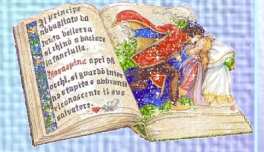 Il Principe
abbagliato da
tanta bellezza
si chinò a baciare
la fanciulla.
Rosaspina aprì gli
occhi, si guardò intor
no stupita e
riconoscente il suo
salvatore.